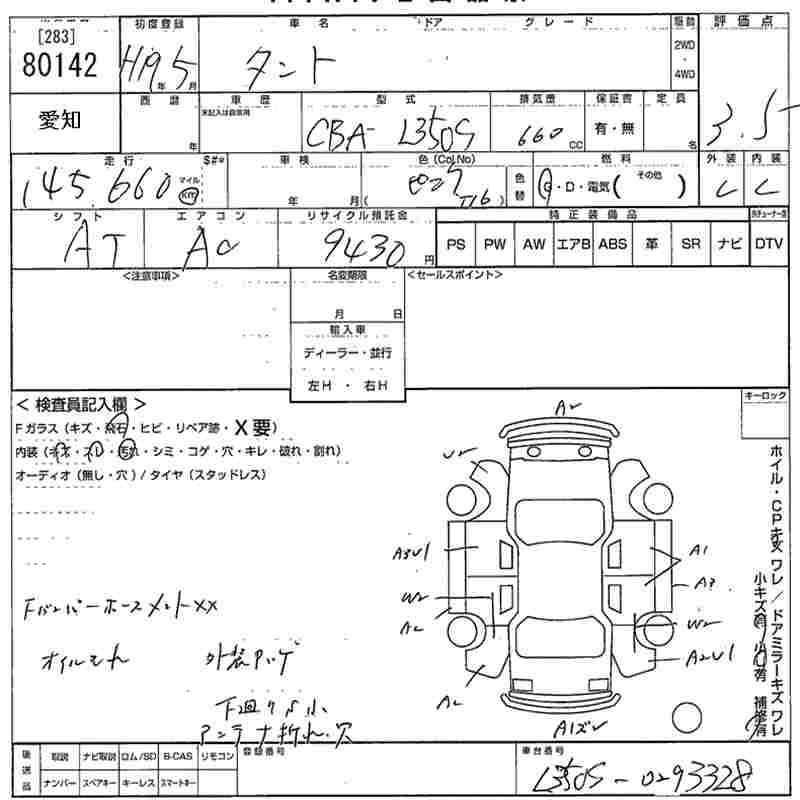 [283]
80142
愛知
初度登録
H19年5月
車名
タント
ドア
グレード
駆動
2WD
・
4WD
評価点
3.5
西暦
年
車歴
未記入は自家用
型式
CBA- L350S
排気量
660 CC
保証書
有・無
定員
名
走行
145,660
マイル
km
S#*
車検
年 月(
色(Col.No)
ピンク
T16)
色替
燃料
G・D・電気( その他 )
外装
C
内装
C
シフト
AT
エアコン
AC
リサイクル預託金
9430円
純正装備品
PS PW AW エアB ABS 革 SR ナビ
DTV
<注意事項>
名変期限
月 日
輸入車
ディーラー・並行
左H ・ 右H
<セールスポイント>
<検査員記入欄>
Fガラス(キズ・飛石・ヒビ・リペア跡・X要)
内装(キズ・スレ・汚れ・シミ・コゲ・穴・キレ・破れ・割れ)
オーディオ(無し・穴)/タイヤ(スタッドレス)
Fバンパーホースメントxx
オイルもれ
外装ハゲ
下廻りS小
アンテナ折れ・穴
キーロック
A2
U2
A3U1
W2
A2
A2
A1
A3
W2
A2U1
A1ズレ
ホイル・CPキズワレ/ドアミラーキズワレ
小キズ有 小凹有 補修有
後送品
取説 ナビ取説 ロム/SD B-CAS リモコン
ナンバー スペアキー キーレス スマートキー
登録番号
車台番号
L350S-0293328